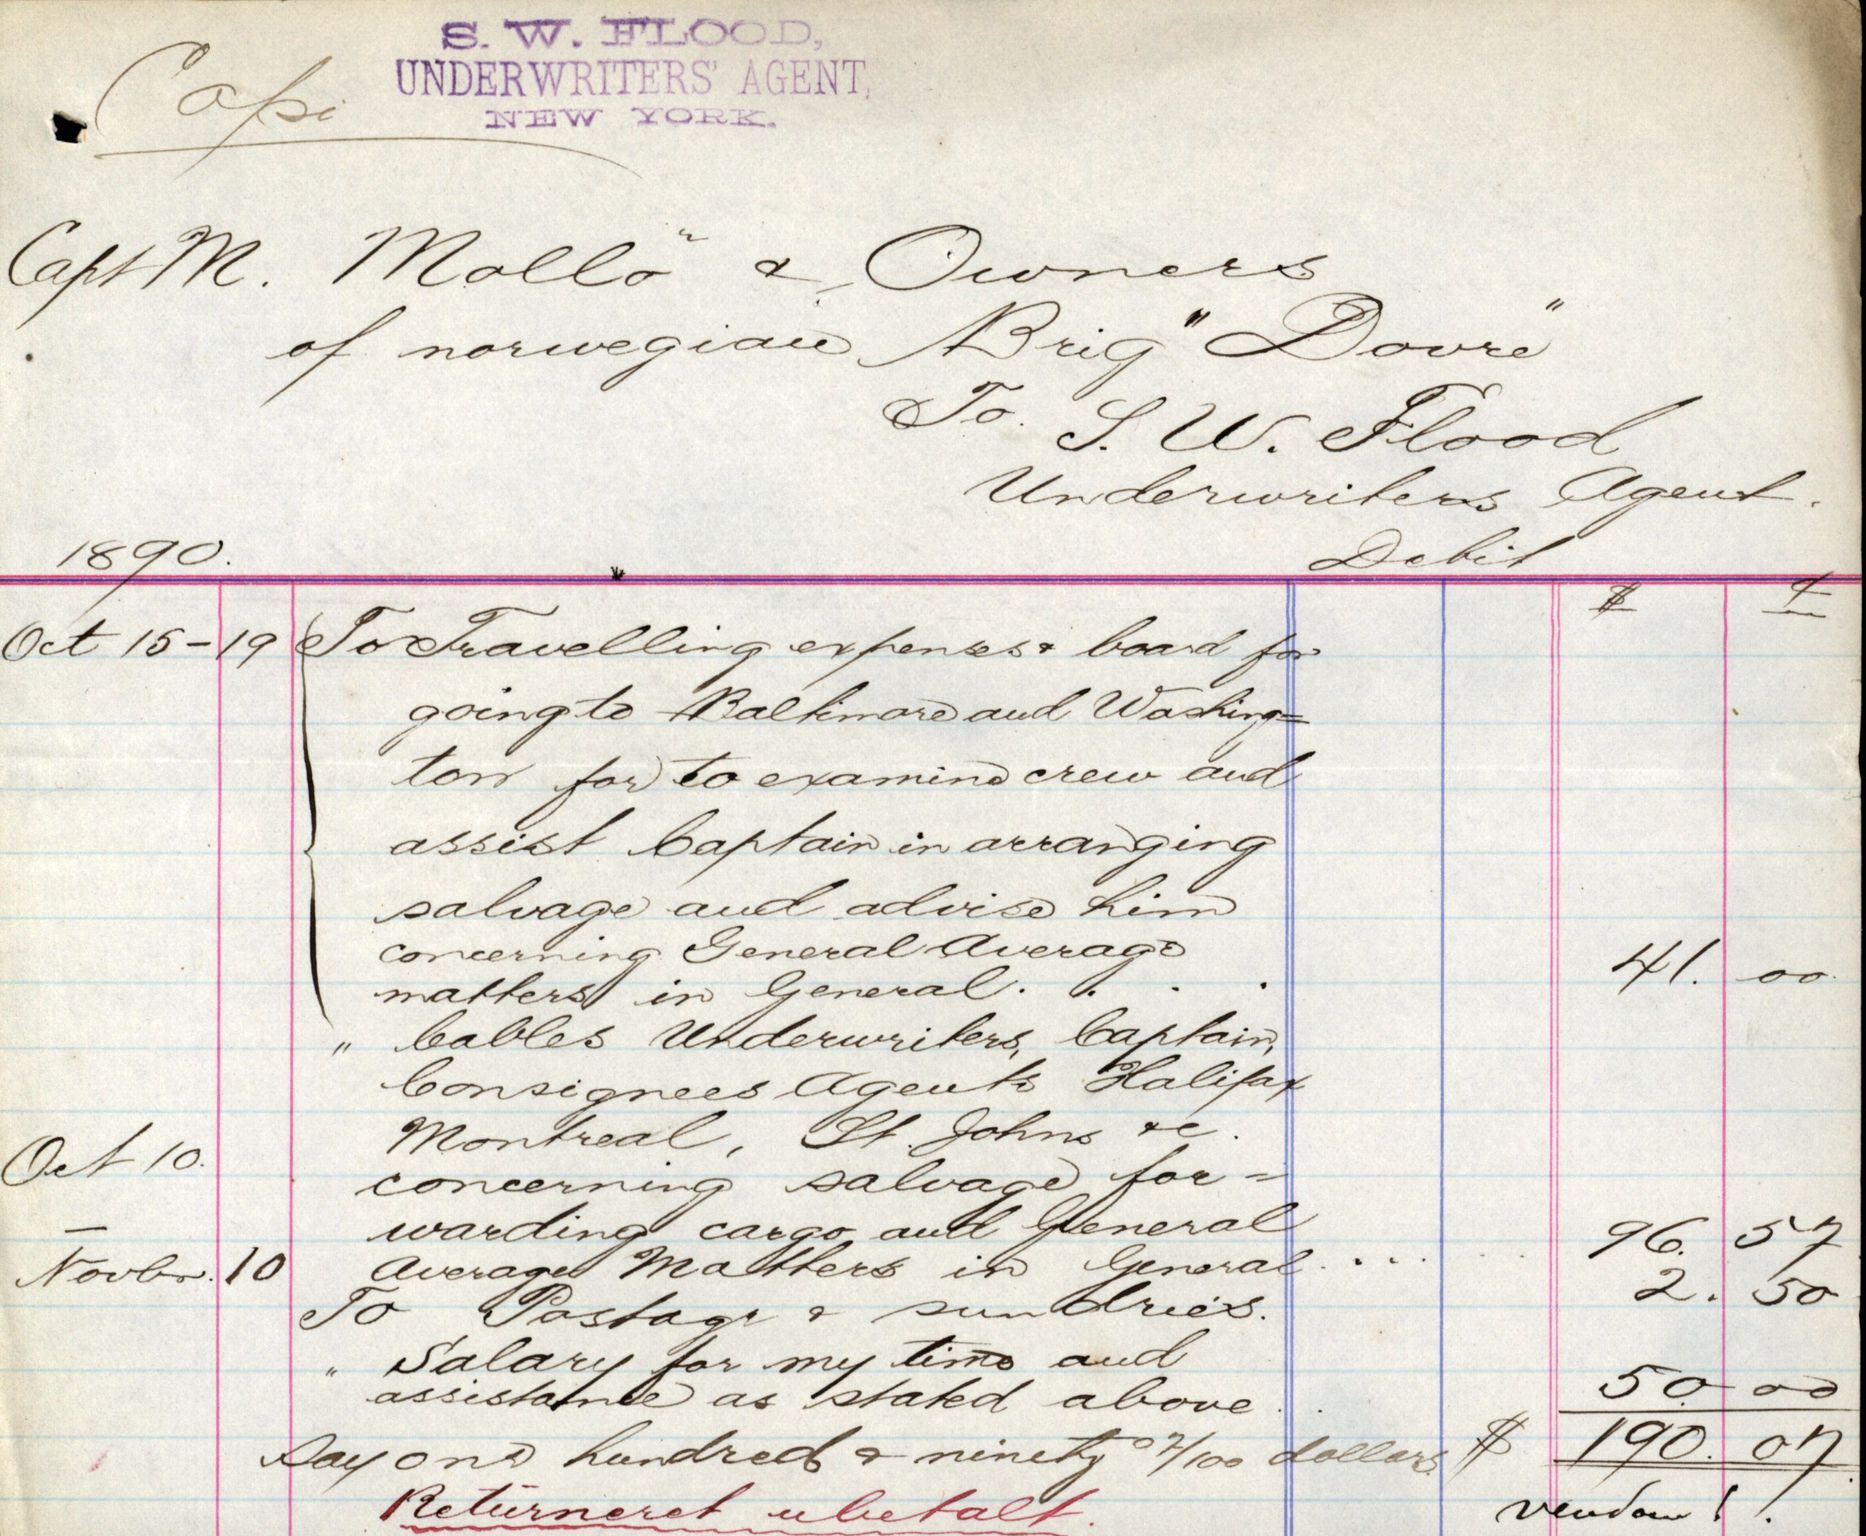 S. W. FLOOD,
UNDERWRITERS' AGENT,
NEW YORK.
Copi
Capt M. Mollö & Owners
of norwegian Brig "Dovre"
To S. W. Flood
Underwriters Agent.
1890. Debit
$ ¢
Oct 15-19 To Travelling expenses & board for
going to Baltimore and Washing=
ton for to examine crew and
assist Captain in arranging
salvage and advise him
concerning General Average
matters in General. . . . 41. 00
" Cables Underwriters, Captain,
Consignees Agents Halifax
Montreal, St. Johns &c.
Oct 10. concerning salvage for=
– warding cargo and General
Novbr. 10 Average Matters in General . . . . 96. 57
To Postage & sundries. 2. 50
" Salary for my time and
assistance as stated above . . 50. 00
Say one hundred & ninety 07/100 dollars $ 190. 07
Returneret ubetalt.